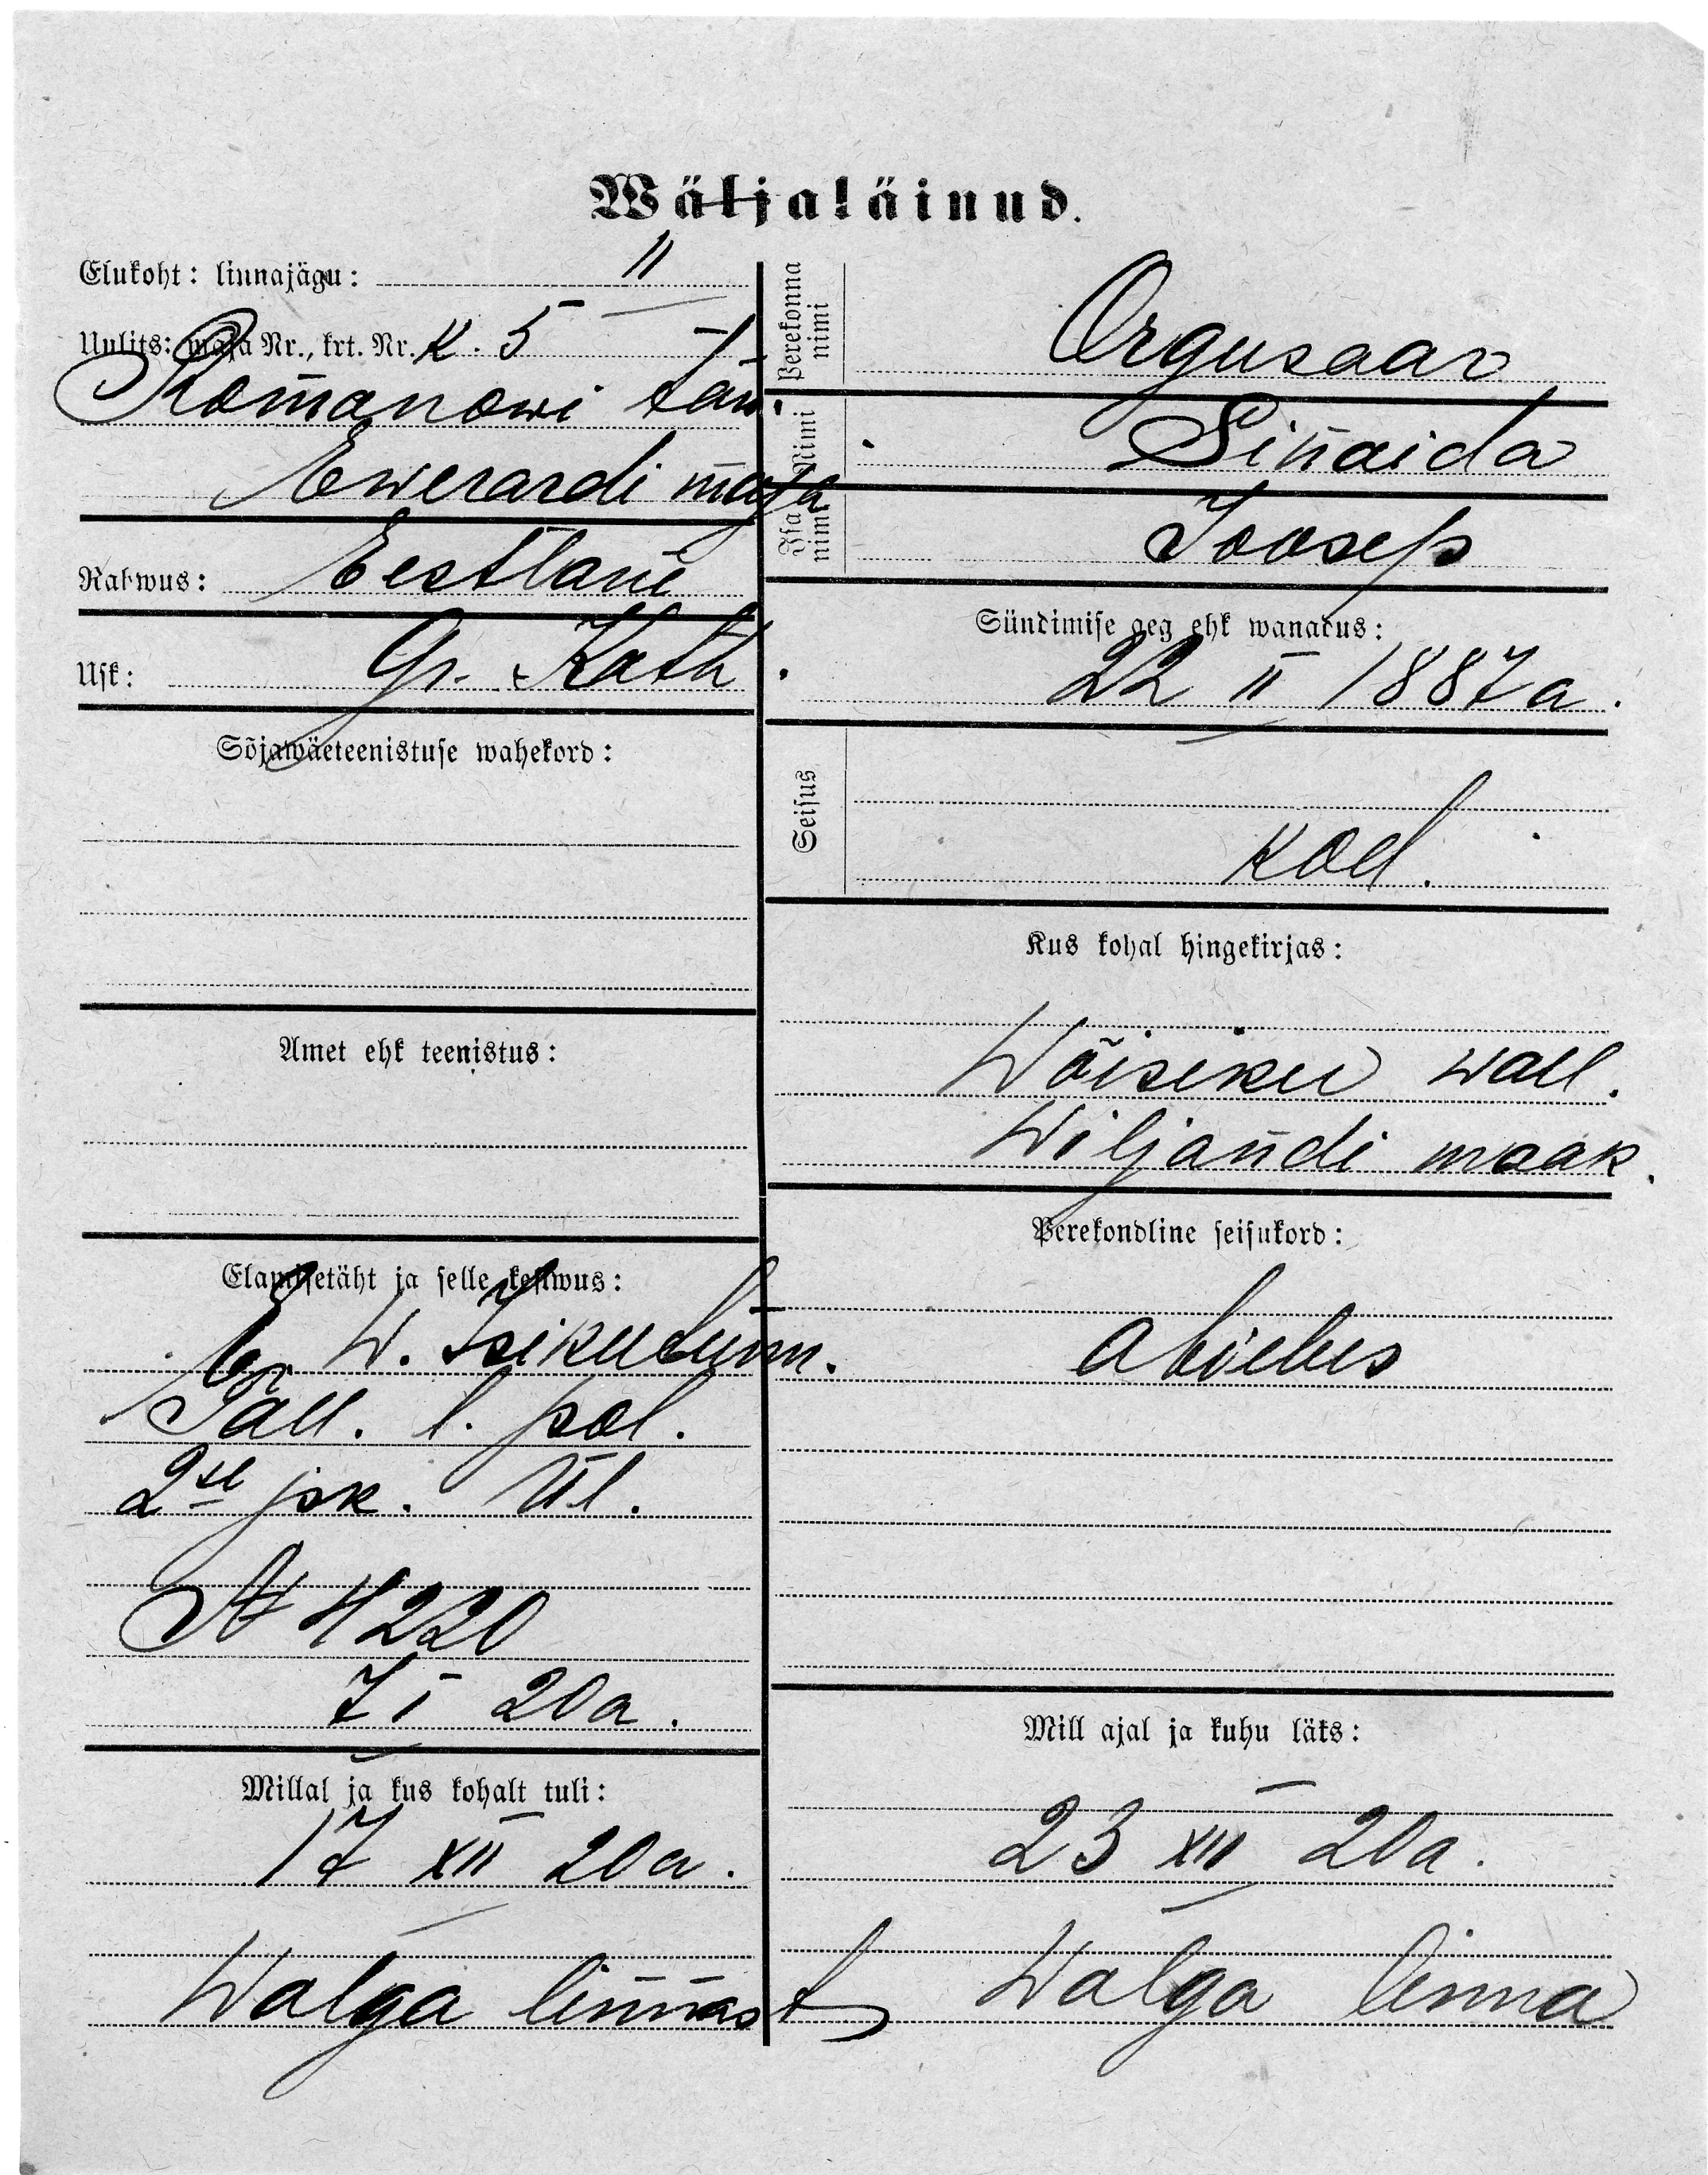 Wäljaläinud.
Elukoht: linnajägu: II
Uulits: maja Nr., krt. Nr. K. 5
Romanowi tän.
Ewerardi maja
Rahwus: Eestlane
Usk: Gr. Kath.
Sõjawäeteenistuse wahekord:
Amet ehk teenistus:
Elamisetäht ja selle kestwus:
E. W. Isikutunn.
Tall. l. pol.
2se jsk. Ül.
№ 4220
7 I 20a.
Millal ja kus kohalt tuli:
17 XII 20a.
Walga linnast
Perekonna nimi
Orgusaar
Nimi
Sinaida
Isa nimi
Joosep
Sündimise aeg ehk wanadus:
22 II 1887a.
Seisus
kod.
Kus kohal hingekirjas:
Wõisiku wall.
Wiljandi maak.
Perekondline seisukord:
abielus
Mill ajal ja kuhu läks:
23 XII 20a.
Walga linna